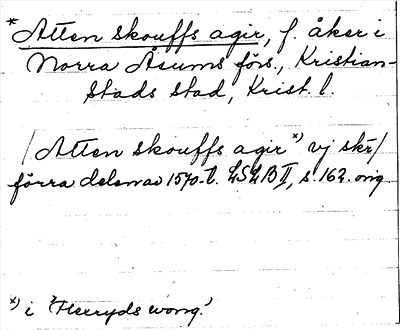 *Atten skouffs agir, f. åker i
Norra Åsums förs., Kristian-
stads stad, Krist. l.
/Atten skouffs agir *) vj skr/
förra delen av 1570-t. LSLB II, s. 162. orig
*) i 'Heeryds wong.'